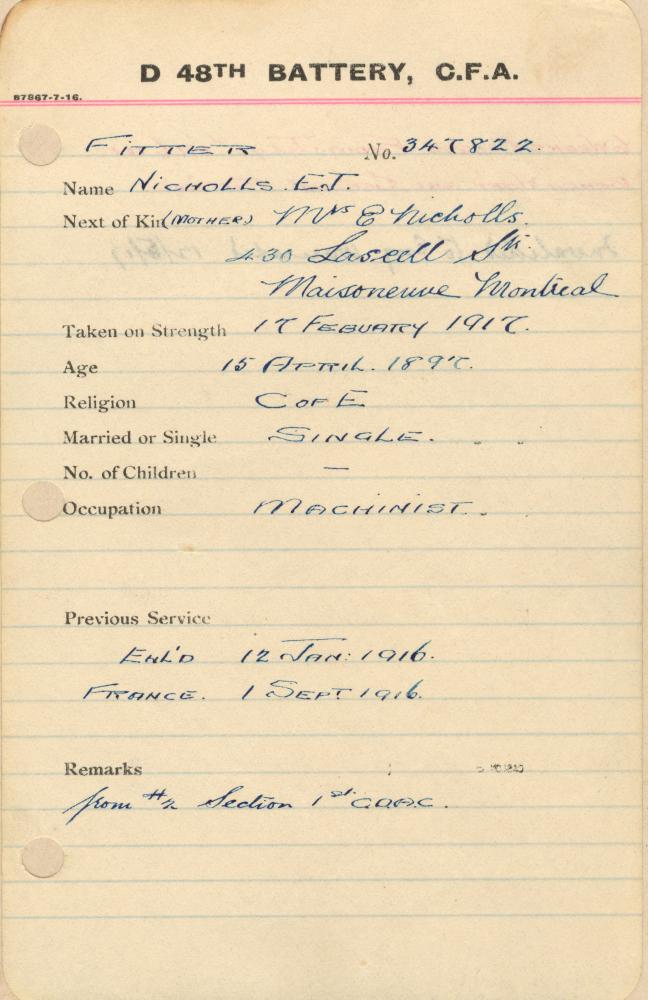 D 48TH BATTERY, C.F.A.
B7867-7-16.
FITTER No. 347822.
Name NICHOLLS. E.T.
Next of Kin (MOTHER) Mrs E Nicholls.
430 Lascell St.
Maisoneuve Montreal
Taken on Strength 17 FEBUARY 1917.
Age 15 APRIL. 1897.
Religion C OF E
Married or Single SINGLE.
No. of Children —
Occupation MACHINIST.
Previous Service
ENL'D 12 JAN: 1916.
FRANCE. 1 SEPT 1916.
Remarks
from #2 Section 1st C.D.A.C.